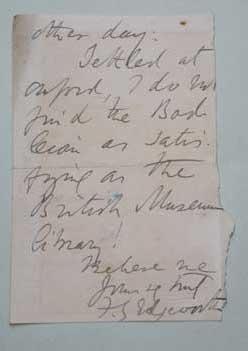 other day.
Settled at
oxford, I do not
find the Bod
leian as satis
fying as the
British Museum
library!
Believe me
Yours very truly
F Y Edgeworth